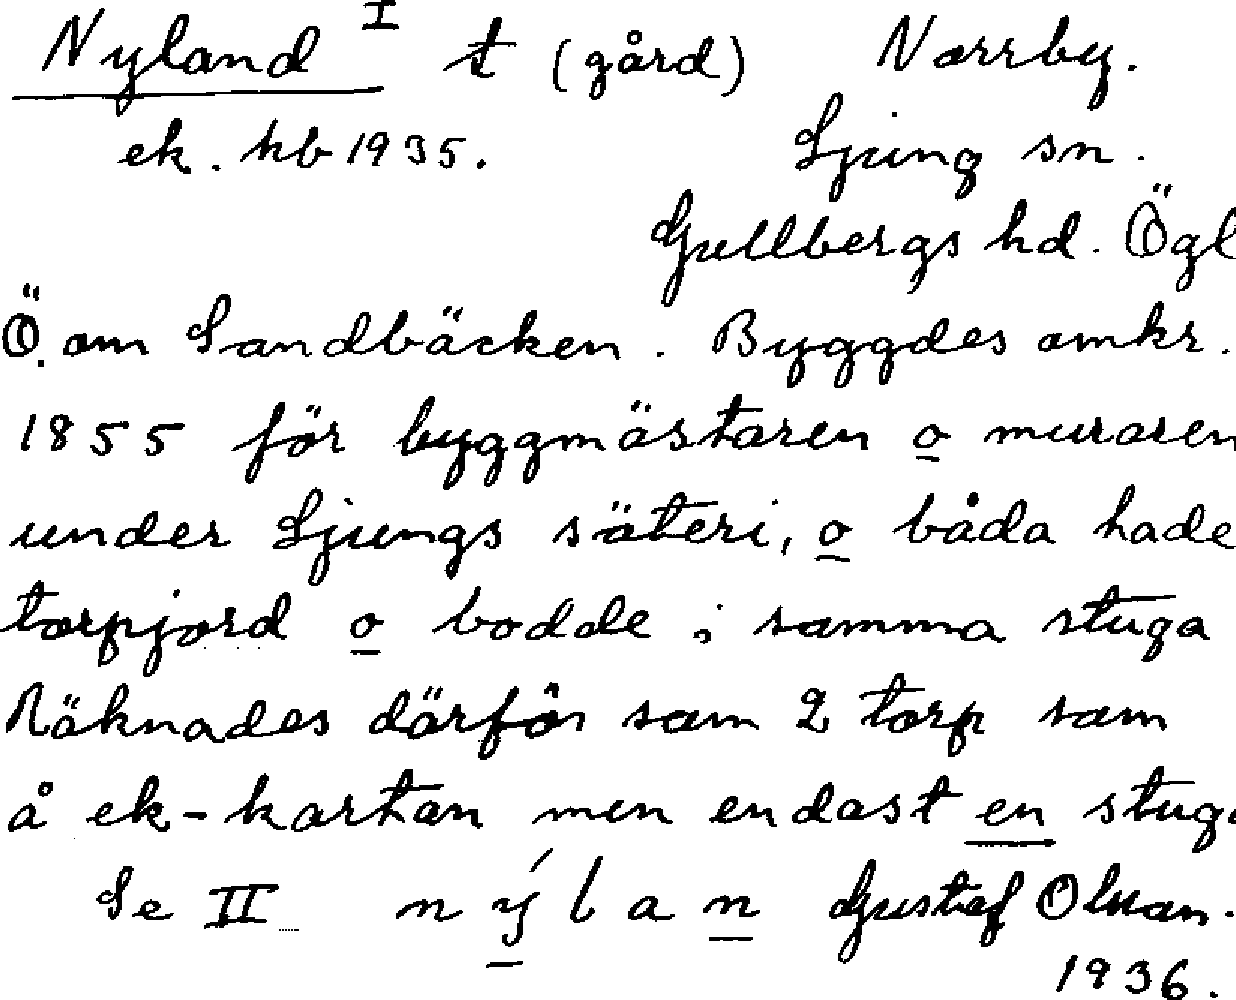 Nyland I t (gård) Norrby.
ek. hb 1935. Ljung sn.
Gullbergs hd. Ögl
Ö. om Sandbäcken. Byggdes omkr.
1855 för byggmästaren o muraren
under Ljungs säteri, o båda hade
torpjord o bodde i samma stuga
Räknades därför som 2 torp som
å ek-kartan men endast en stuga
Se II nýlan Gustaf Olson.
1936.